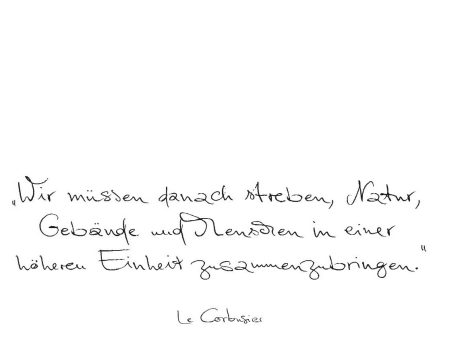 „Wir müssen danach streben, Natur,
Gebäude und Menschen in einer
höheren Einheit zusammenzubringen.“
Le Corbusier